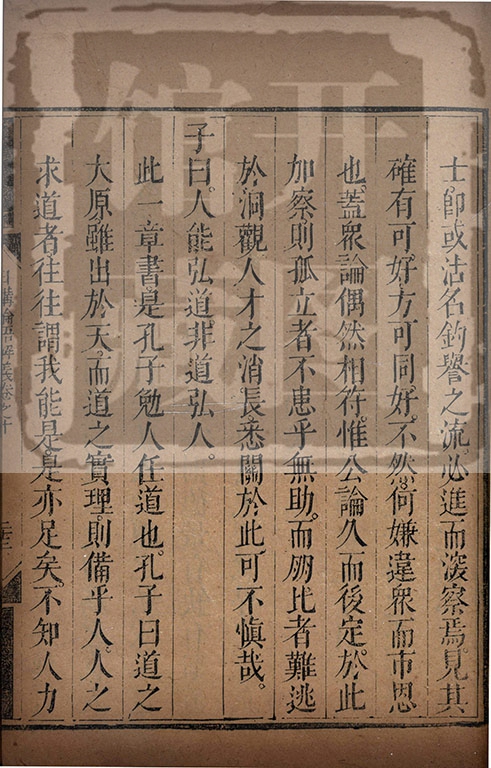 士卽或沽名釣譽之流必進而深察焉見其
確有可好方可同好不然何嫌違衆而市恩
也蓋衆論偶然相符惟公論久而後定於此
加察則孤立者不患乎無助而朋比者難逃
於洞觀人才之消長悉關於此可不慎哉
子曰人能弘道非道弘人
此一章書是孔子勉人任道也孔子曰道之
大原雖出於天而道之實理則備乎人人之
求道者往往謂我能是是亦足矣不知人力